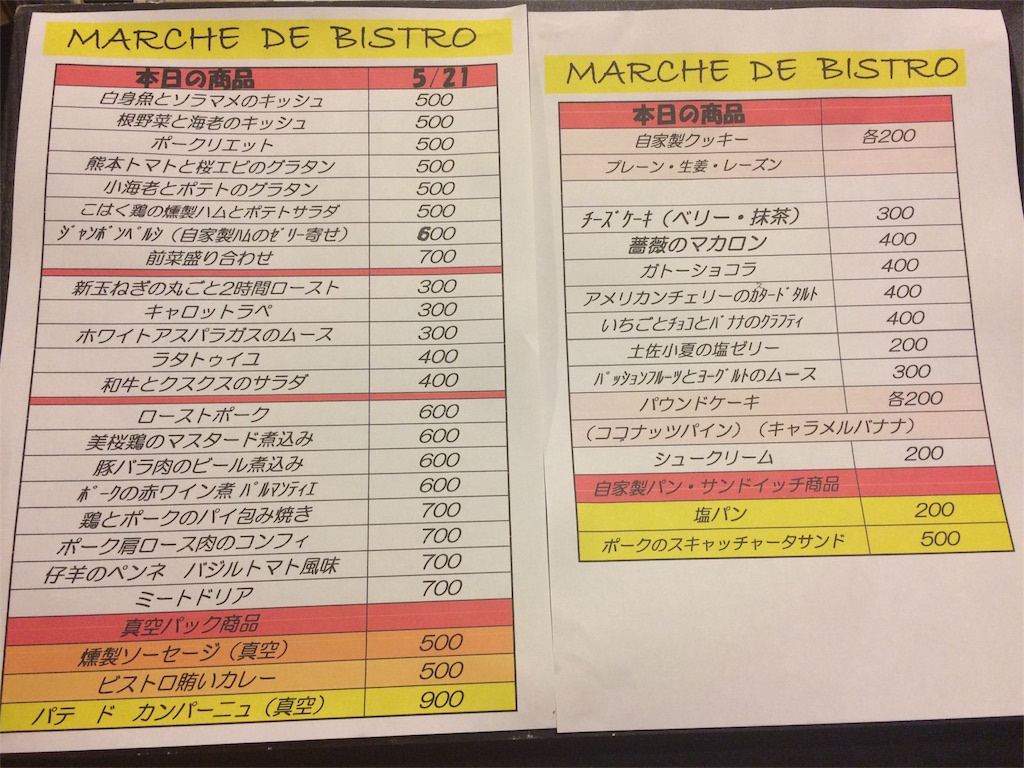 MARCHE DE BISTRO
本日の商品 5/21
白身魚とソラマメのキッシュ 500
根野菜と海老のキッシュ 500
ポークリエット 500
熊本トマトと桜エビのグラタン 500
小海老とポテトのグラタン 500
こはく鶏の燻製ハムとポテトサラダ 500
ｼﾞｬﾝﾎﾞﾝﾍﾟﾙｼ（自家製ﾊﾑのｾﾞﾘｰ寄せ） 600
前菜盛り合わせ 700
新玉ねぎの丸ごと2時間ロースト 300
キャロットラペ 300
ホワイトアスパラガスのムース 300
ラタトゥイユ 400
和牛とクスクスのサラダ 400
ローストポーク 600
美桜鶏のマスタード煮込み 600
豚バラ肉のビール煮込み 600
ﾎﾟｰｸの赤ワイン煮 ﾊﾟﾙﾏﾝﾃｨｴ 600
鶏とポークのパイ包み焼き 700
ポーク肩ロース肉のコンフィ 700
仔羊のペンネ　バジルトマト風味 700
ミートドリア 700
真空パック商品
燻製ソーセージ（真空） 500
ビストロ賄いカレー 500
パテ　ド　カンパーニュ（真空） 900
MARCHE DE BISTRO
本日の商品
自家製クッキー 各200
プレーン・生姜・レーズン
ﾁｰｽﾞｹｰｷ（ベリー・抹茶） 300
薔薇のマカロン 400
ガトーショコラ 400
アメリカンチェリーのｶｽﾀｰﾄﾞﾀﾙﾄ 400
いちごとﾁｮｺとﾊﾞﾅﾅのｸﾗﾌﾃｨ 400
土佐小夏の塩ゼリー 200
ﾊﾟｯｼｮﾝﾌﾙｰﾂとﾖｰｸﾞﾙﾄのムース 300
パウンドケーキ 各200
（ココナッツパイン）（キャラメルバナナ）
シュークリーム 200
自家製パン・サンドイッチ商品
塩パン 200
ポークのスキャッチャータサンド 500